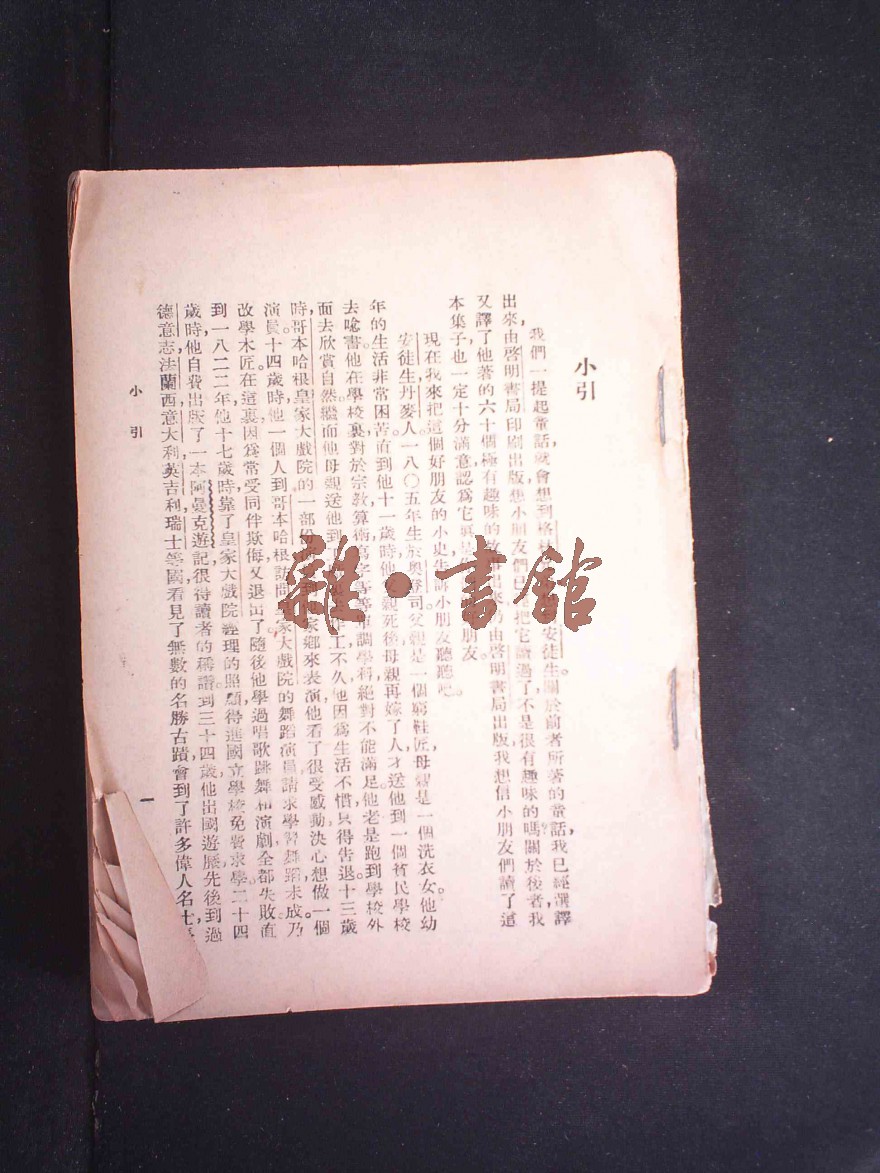 小引
我們一提起童話，就會想到格林 安徒生。關於前者所著的童話，我已經翻譯
出來，由啓明書局印刷出版，想小朋友們已經把它讀過了，不是很有趣味的嗎？關於後者，我
又譯了他著的六十個極有趣味的故 出來，仍由啓明書局出版，我想信小朋友們讀了這
本集子，也一定十分滿意，認爲它 朋友。
現在我來把這個好朋友的小史告訴小朋友聽聽吧。
安徒生丹麥人，一八〇五年生於奧 司。父親是一個窮鞋匠，母親是一個洗衣女。他幼
年的生活非常困苦，直到他十一歲時，他父親死後，母親再嫁了人，才送他到一個貧民學校
去唸書。他在學校裏，對於宗教、算術、寫字等等單調學科，絕對不能滿足，他老是跑到學校外
面去欣賞自然。繼而他母親送他到 工，不久他因爲生活不慣，只得告退。十三歲
時，哥本哈根皇家大戲院的一部份 家鄉來表演，他看了很受感動，決心想做一個
演員。十四歲時，他一個人到哥本哈根訪問皇家大戲院的舞蹈演員，請求學習舞蹈，未成，乃
改學木匠。在這裏，因爲常受同伴欺侮，又退出了。隨後他學過唱歌、跳舞和演劇，全都失敗。直
到一八二二年，他十七歲時，靠了皇家大戲院經理的照顧，得進國立學校免費求學。二十四
歲時，他自費出版了一本阿曼克遊記，很得讀者的稱譜。到三十四歲，他出國遊歷，先後到過
德意志、法蘭西、意大利、英吉利、瑞士等國，看見了無數的名勝古蹟，會到了許多偉人名士。
小引
一
雜·書館